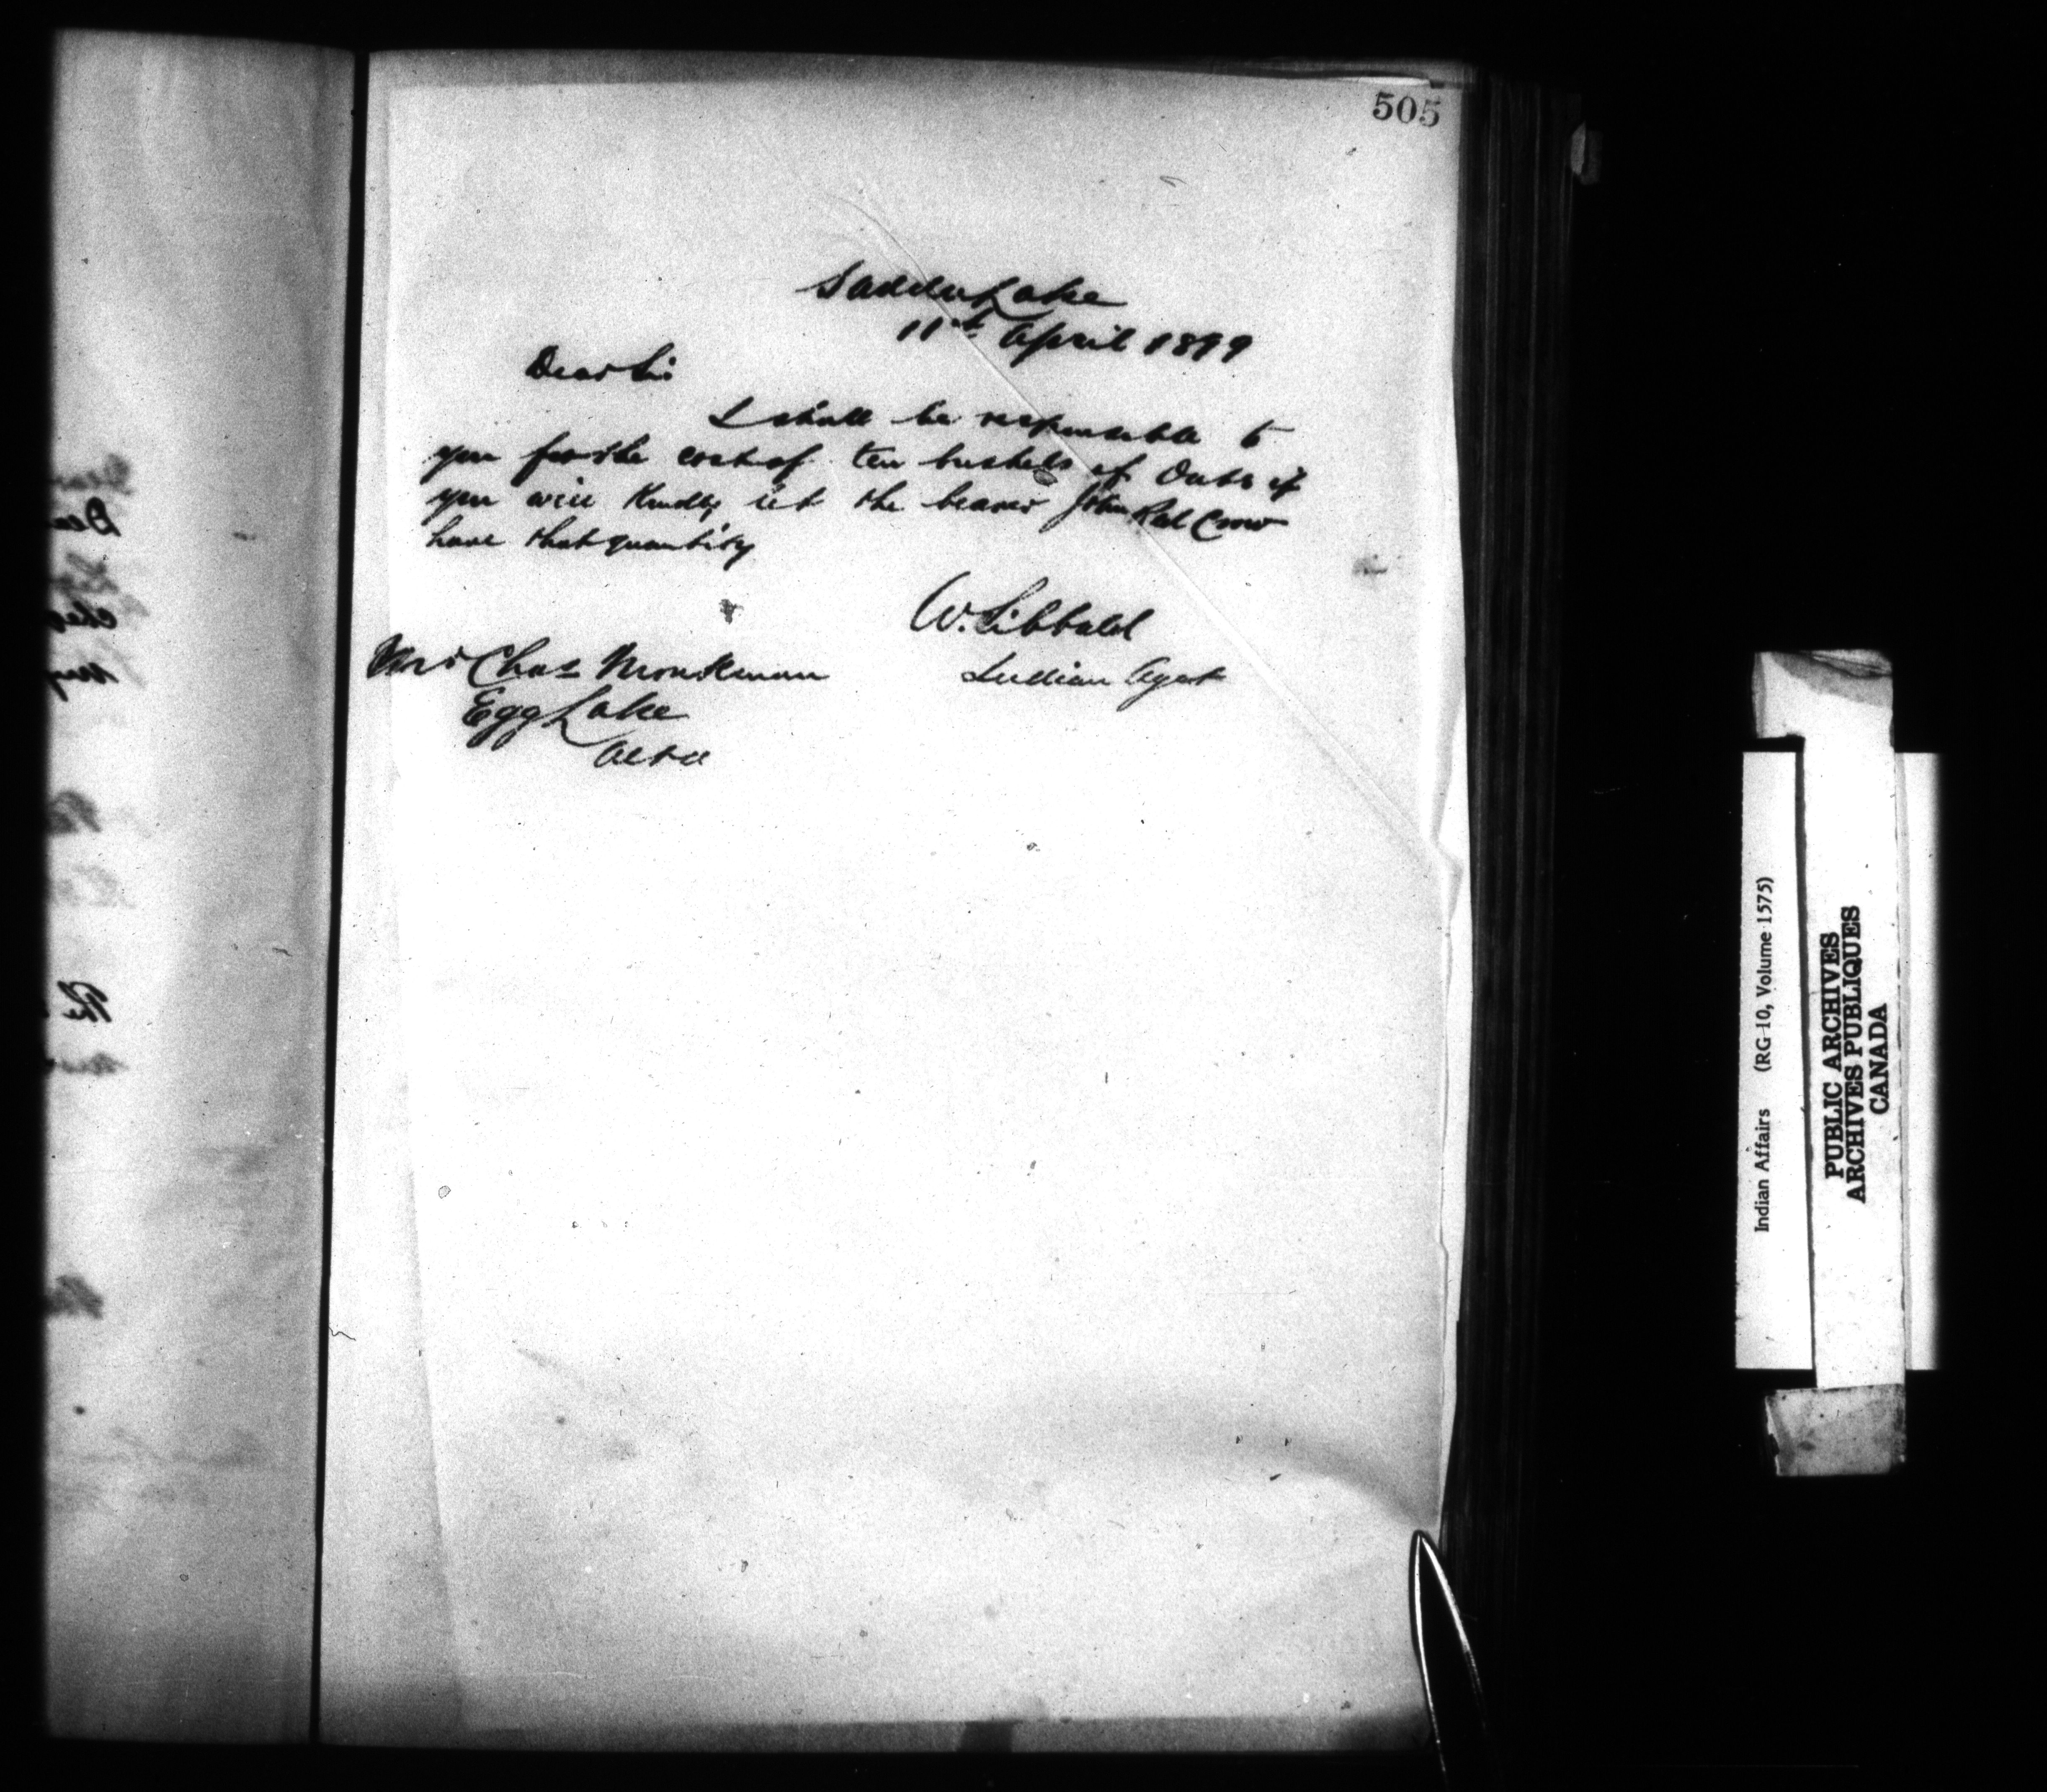 505
Saddle Lake
11th April 1899
Dear Sir
I shall be responsible to
you for the cost of ten bushels of Oats if
you will Kindly let the bearer John Red Crow
have that quantity
W. Sibbald
Indian Agent
Mr Chas Monkman
Egg Lake
Alta
Indian Affairs (RG-10, Volume 1575)
PUBLIC ARCHIVES
ARCHIVES PUBLIQUES
CANADA